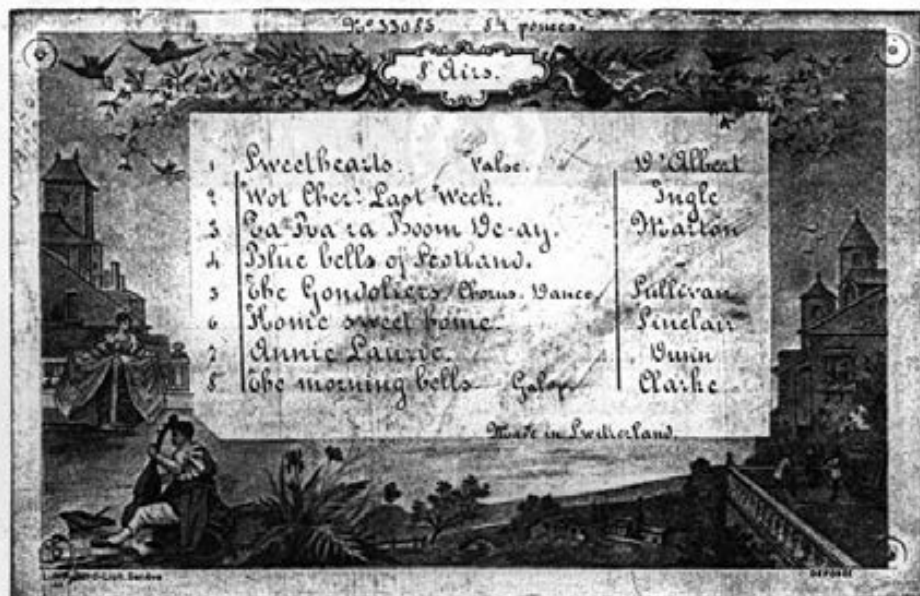 No 33085. 8¼ pouces.
8 Airs.
1 Sweethearts. Valse. D'Albert
2 Wot Cher: Last Week. Ingle
3 Ta Ra ra Boom De-ay. Marton
4 Blue bells of Scotland. -
5 The Gondoliers. Chorus. Dance. Sullivan
6 Home sweet home. Sinclair
7 Annie Laurie. Dunn
8 The morning bells Galop Clarke
Made in Switzerland.
Genève
DEPOSE